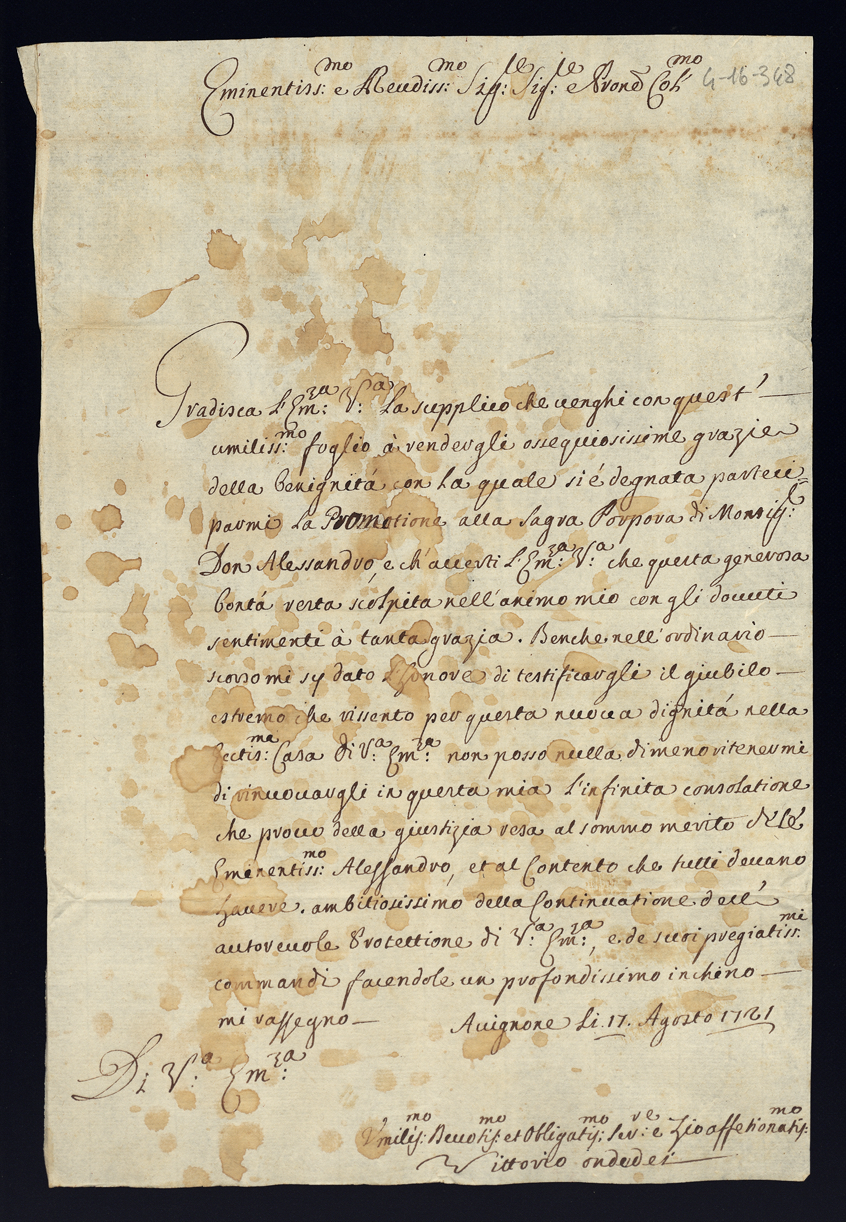 Eminentiss:mo e Reudiss:mo Sig:re Sig:re e Pron Col:mo 4-16-348
Gradisca l'Em:za V:a La supplico che uenghi con quest'
umiliss:mo foglio à rendergli ossequiosissime grazie
della benignitá con la quale si é degnata parteci=
parmi la Promotione alla Sagra Porpora di Monsig:re
Don Alessandro, e ch'accerti l'Em:za V:a che questa generosa
bontá resta scolpita nell'animo mio con gli douuti
sentimenti à tanta grazia. Benche nell'ordinario
scorso mi sij dato l'Honore di testificargli il giubilo
estremo che rissento per questa nuoua dignitá nella
Ecctis:ma Casa di V:a Em:za non posso nulla di meno ritenermi
di rinuouargli in questa mia l'infinita consolatione
che prouo della giustizia resa al sommo merito
Eminentiss:mo Alessandro, et al Contento che tutti deuano
hauere. ambitiosissimo della Continuatione dell'
autoreuole Protettione di V:a Em:za, e de suoi pregiatiss:mi
commandi facendole un profondissimo inchino
mi rassegno
Auignone Li 17. Agosto 1721
Di V:a Em:za
Vmilis:mo Deuotis:mo et Obligatis:mo Ser:re e Zio affetionatis:mo
Vittorio ondedei